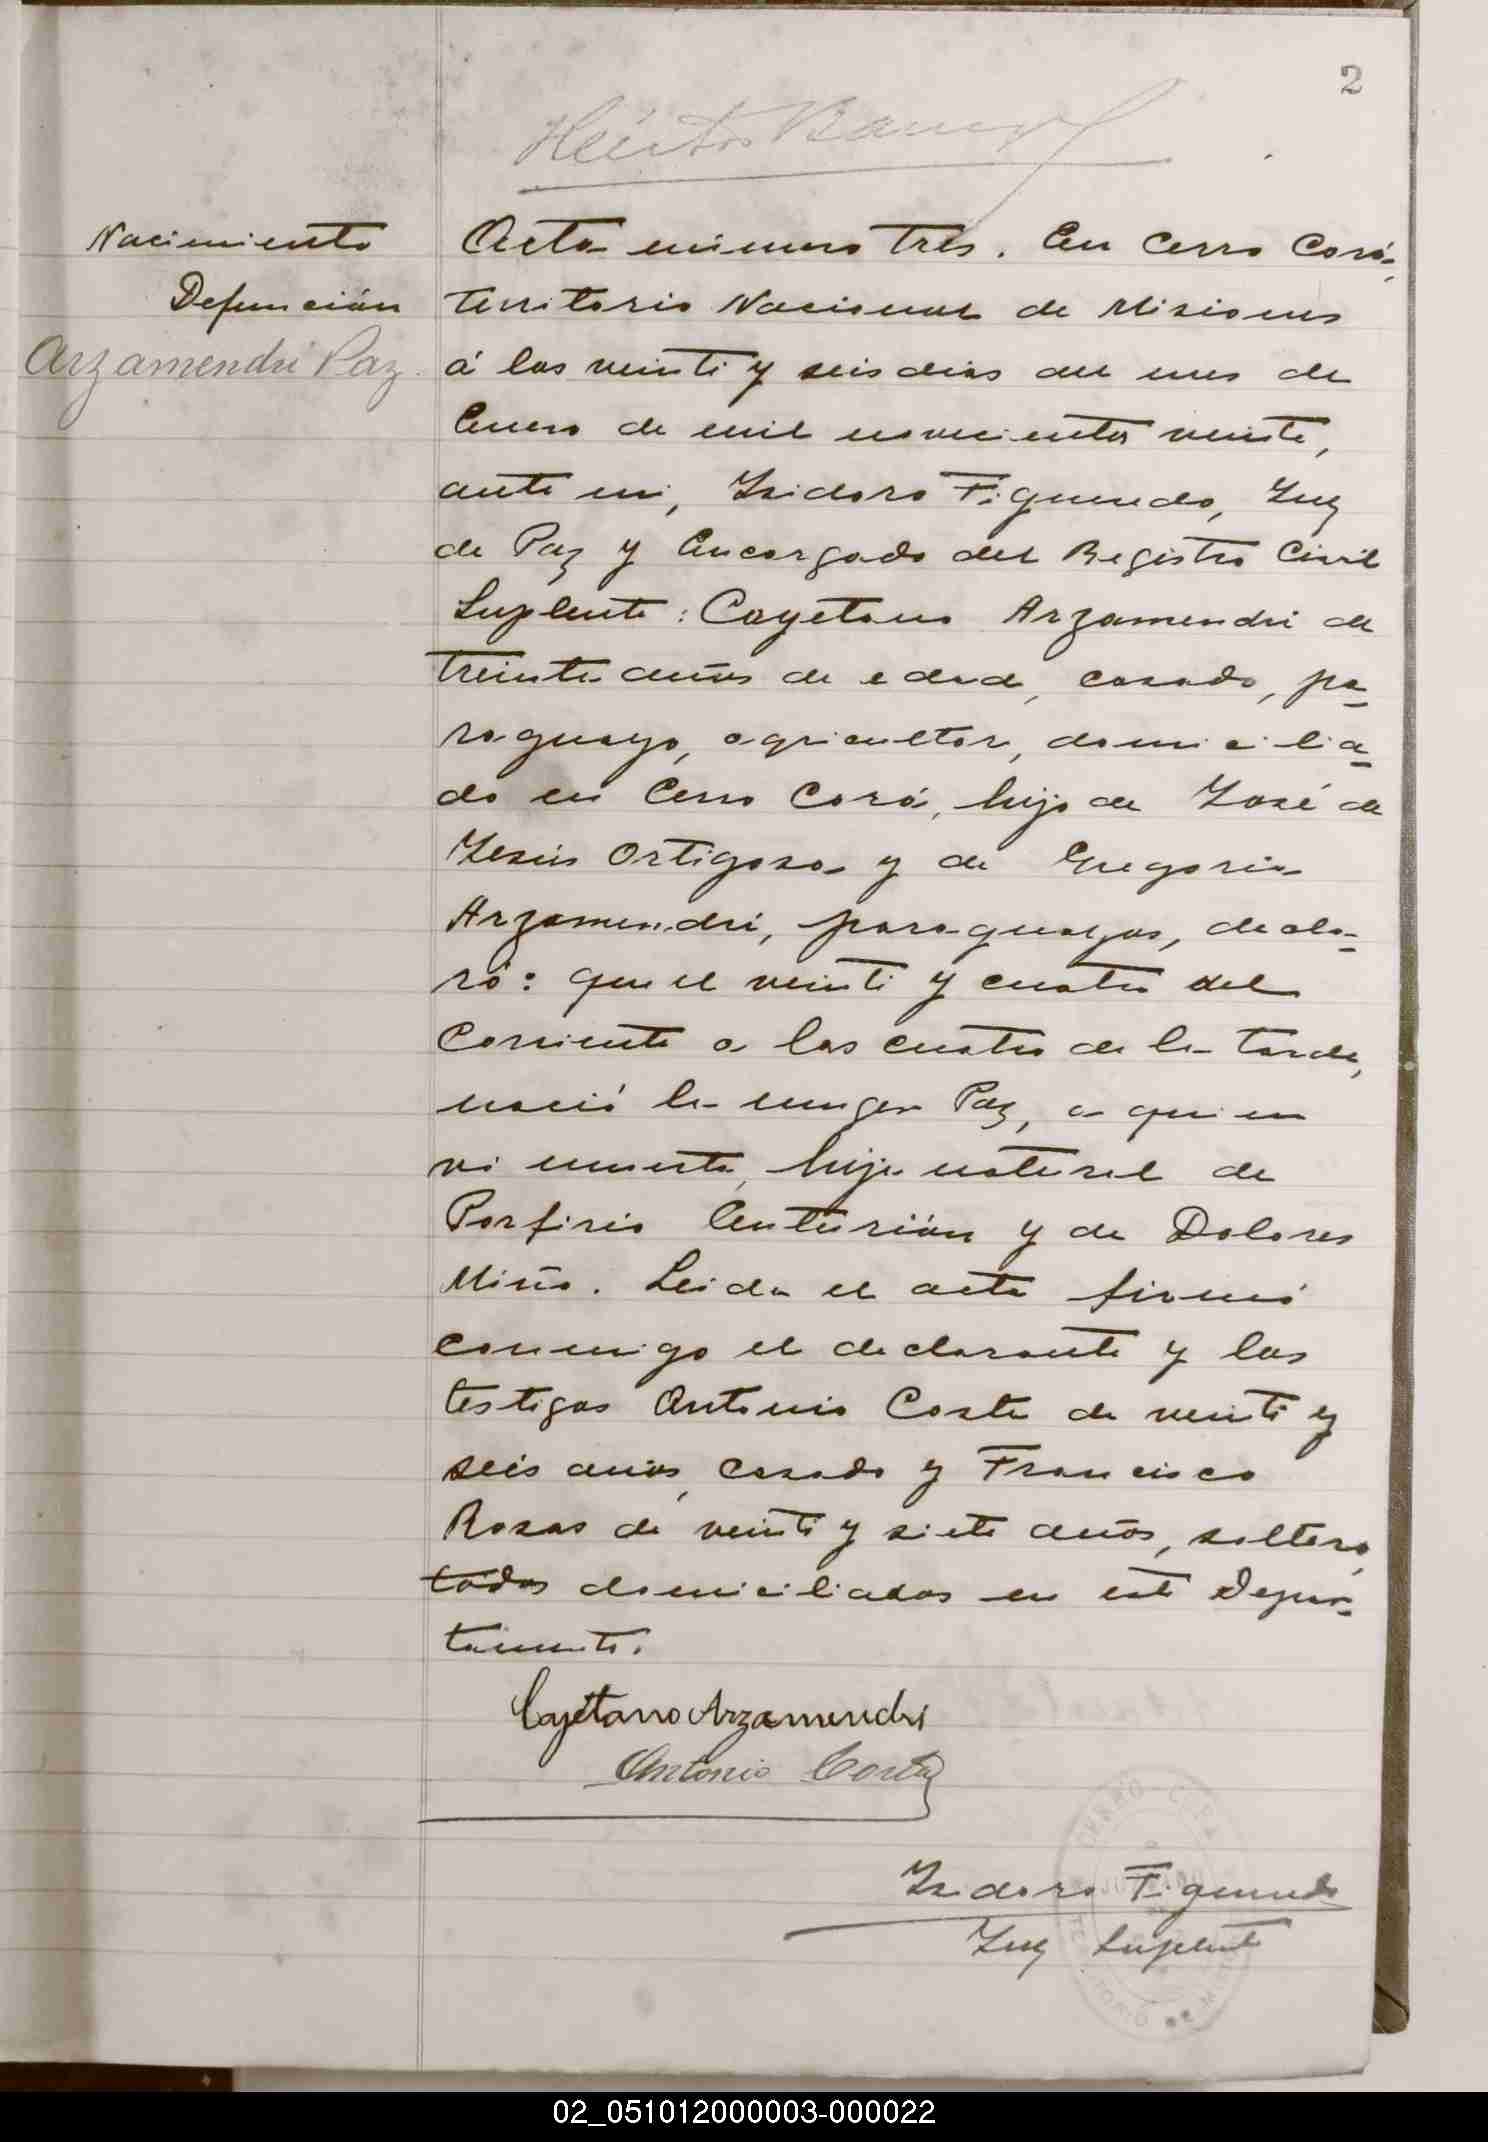 2
Héctor
Nacimiento
Defunción
Arzamendri Paz
Acta número Tres. En Cerro Corá,
Territorio Nacional de Misiones
á los veinti y seis dias del mes de
Enero de mil novecientos veinte,
ante mi, Isidoro Figueredo, Juez
de Paz y Encargado del Registro Civil
Suplente: Cayetano Arzamendri de
treinta años de edad, casado, pa-
raguayo, agricultor, domicilia-
do en Cerro Corá, hijo de José de
Jesús Ortigosa y de Gregoria
Arzamendri, paraguayos, decla-
ró: que el veinti y cuatro del
Corriente a las cuatro de la tarde,
nació la muger Paz, a quien
vi muerta, hija natural de
Porfirio Centurión y de Dolores
Miño. Leida el acta firmó
conmigo el declarante y los
testigos Antonio Costa de veinti y
seis años, casado y Francisco
Rosas de veinti y siete años, soltero,
todos domiciliados en este Depar-
tamento.
Cayetano Arzamendri
Antonio Costa
Isidoro Figueredo
Juez Suplente
CERRO CORÁ
JUZGADO DE
TERRITORIO DE MISIONES
02_051012000003-000022